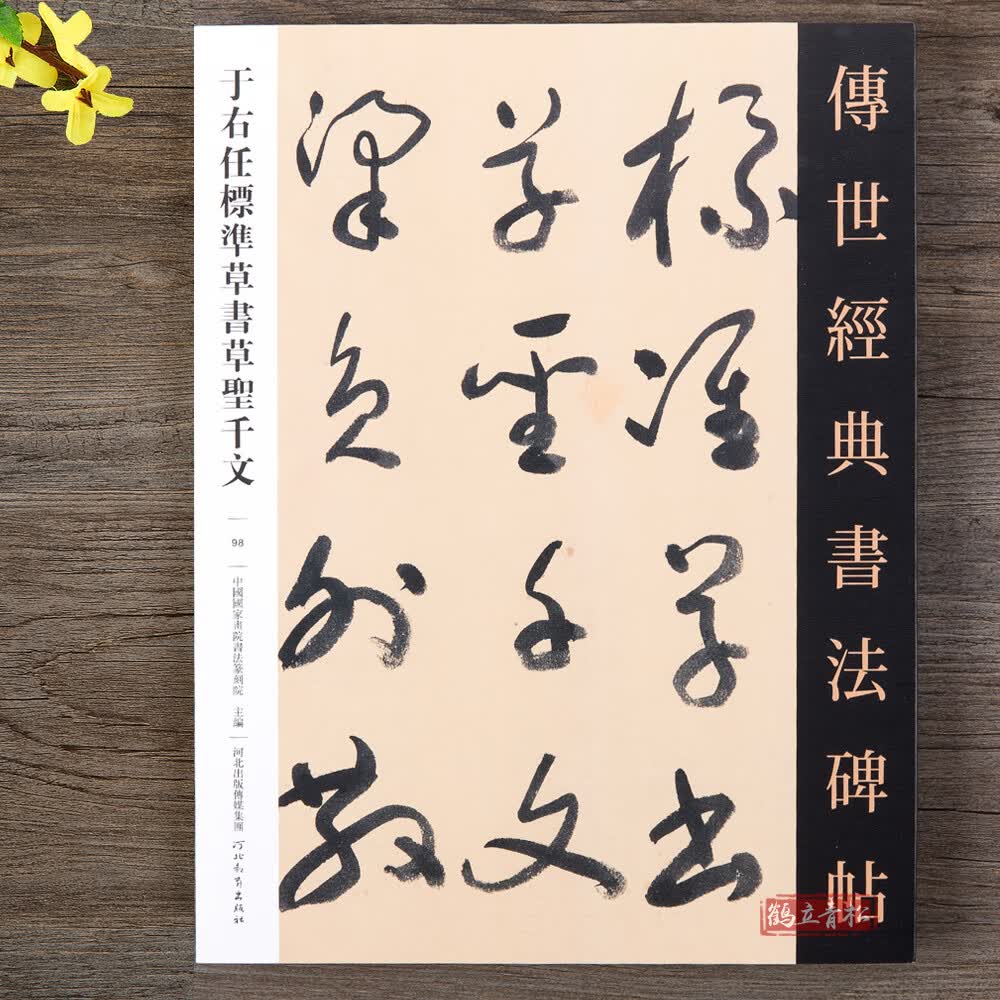 傳世經典書法碑帖
標準草書
草聖千文
梁員外散
于右任標準草書草聖千文
98
中國國家畫院書法篆刻院 主編
河北出版傳媒集團
河北教育出版社
鶴立青松